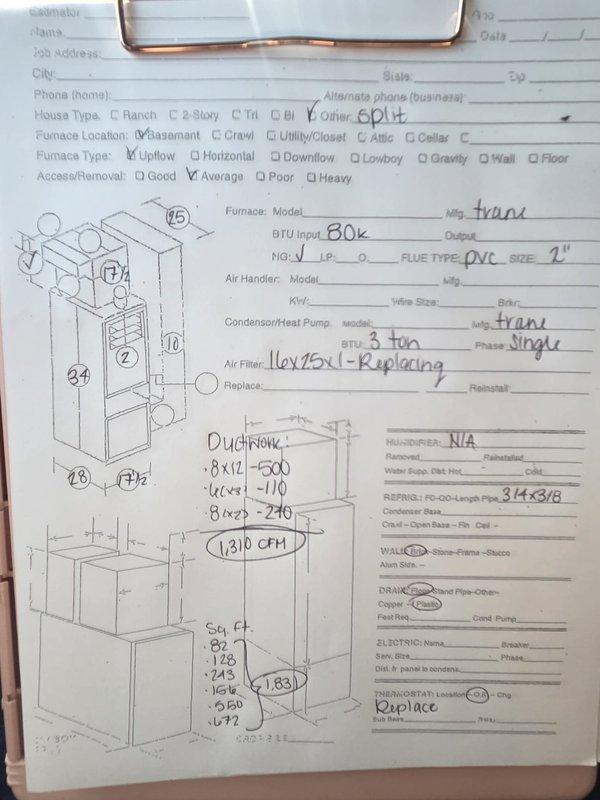 Estimator
Date / /
Name
Job Address:
City: State: Zip
Phone (home): Alternate phone (business):
House Type: Ranch 2-Story Tri Bi Other: split
Furnace Location: Basement Crawl Utility/Closet Attic Cellar
Furnace Type: Upflow Horizontal Downflow Lowboy Gravity Wall Floor
Access/Removal: Good Average Poor Heavy
Furnace: Model Mfg. trane
BTU Input 80k Output
NG: ✓ LP: O. FLUE TYPE: PVC SIZE: 2"
Air Handler: Model Mfg.
KW: Wire Size: Brkr:
Condensor/Heat Pump Model: Mfg. trane
BTU: 3 ton Phase: Single
Air Filter: 16x25x1-Replacing
Replace: Reinstall
25
17 1/2
2
10
34
28
17 1/2
Ductwork:
· 8x12 -500
-110
-240
1,310 CFM
Sq. ft.
· 82
· 128
· 243
· 156
· 550
· 672
1,831
HUMIDIFIER: N/A
Removed Reinstalled
Water Supp. Dist: Hot Cold
REFRIG.: FO-QO-Length Pipe 3/4x3/8
Condenser Base
Crawl - Open Base - Fin Ceil -
WALL: Brick-Stone-Frame-Stucco
Alum Side. -
DRAIN: Floor-Stand Pipe-Other-
Copper - Plastic
Feet Req Cond Pump
ELECTRIC: Name Breaker
Serv. Size Phase
Dist. fr panel to condens.
THERMOSTAT: Location-O.K-Chg
Replace
Sub Base